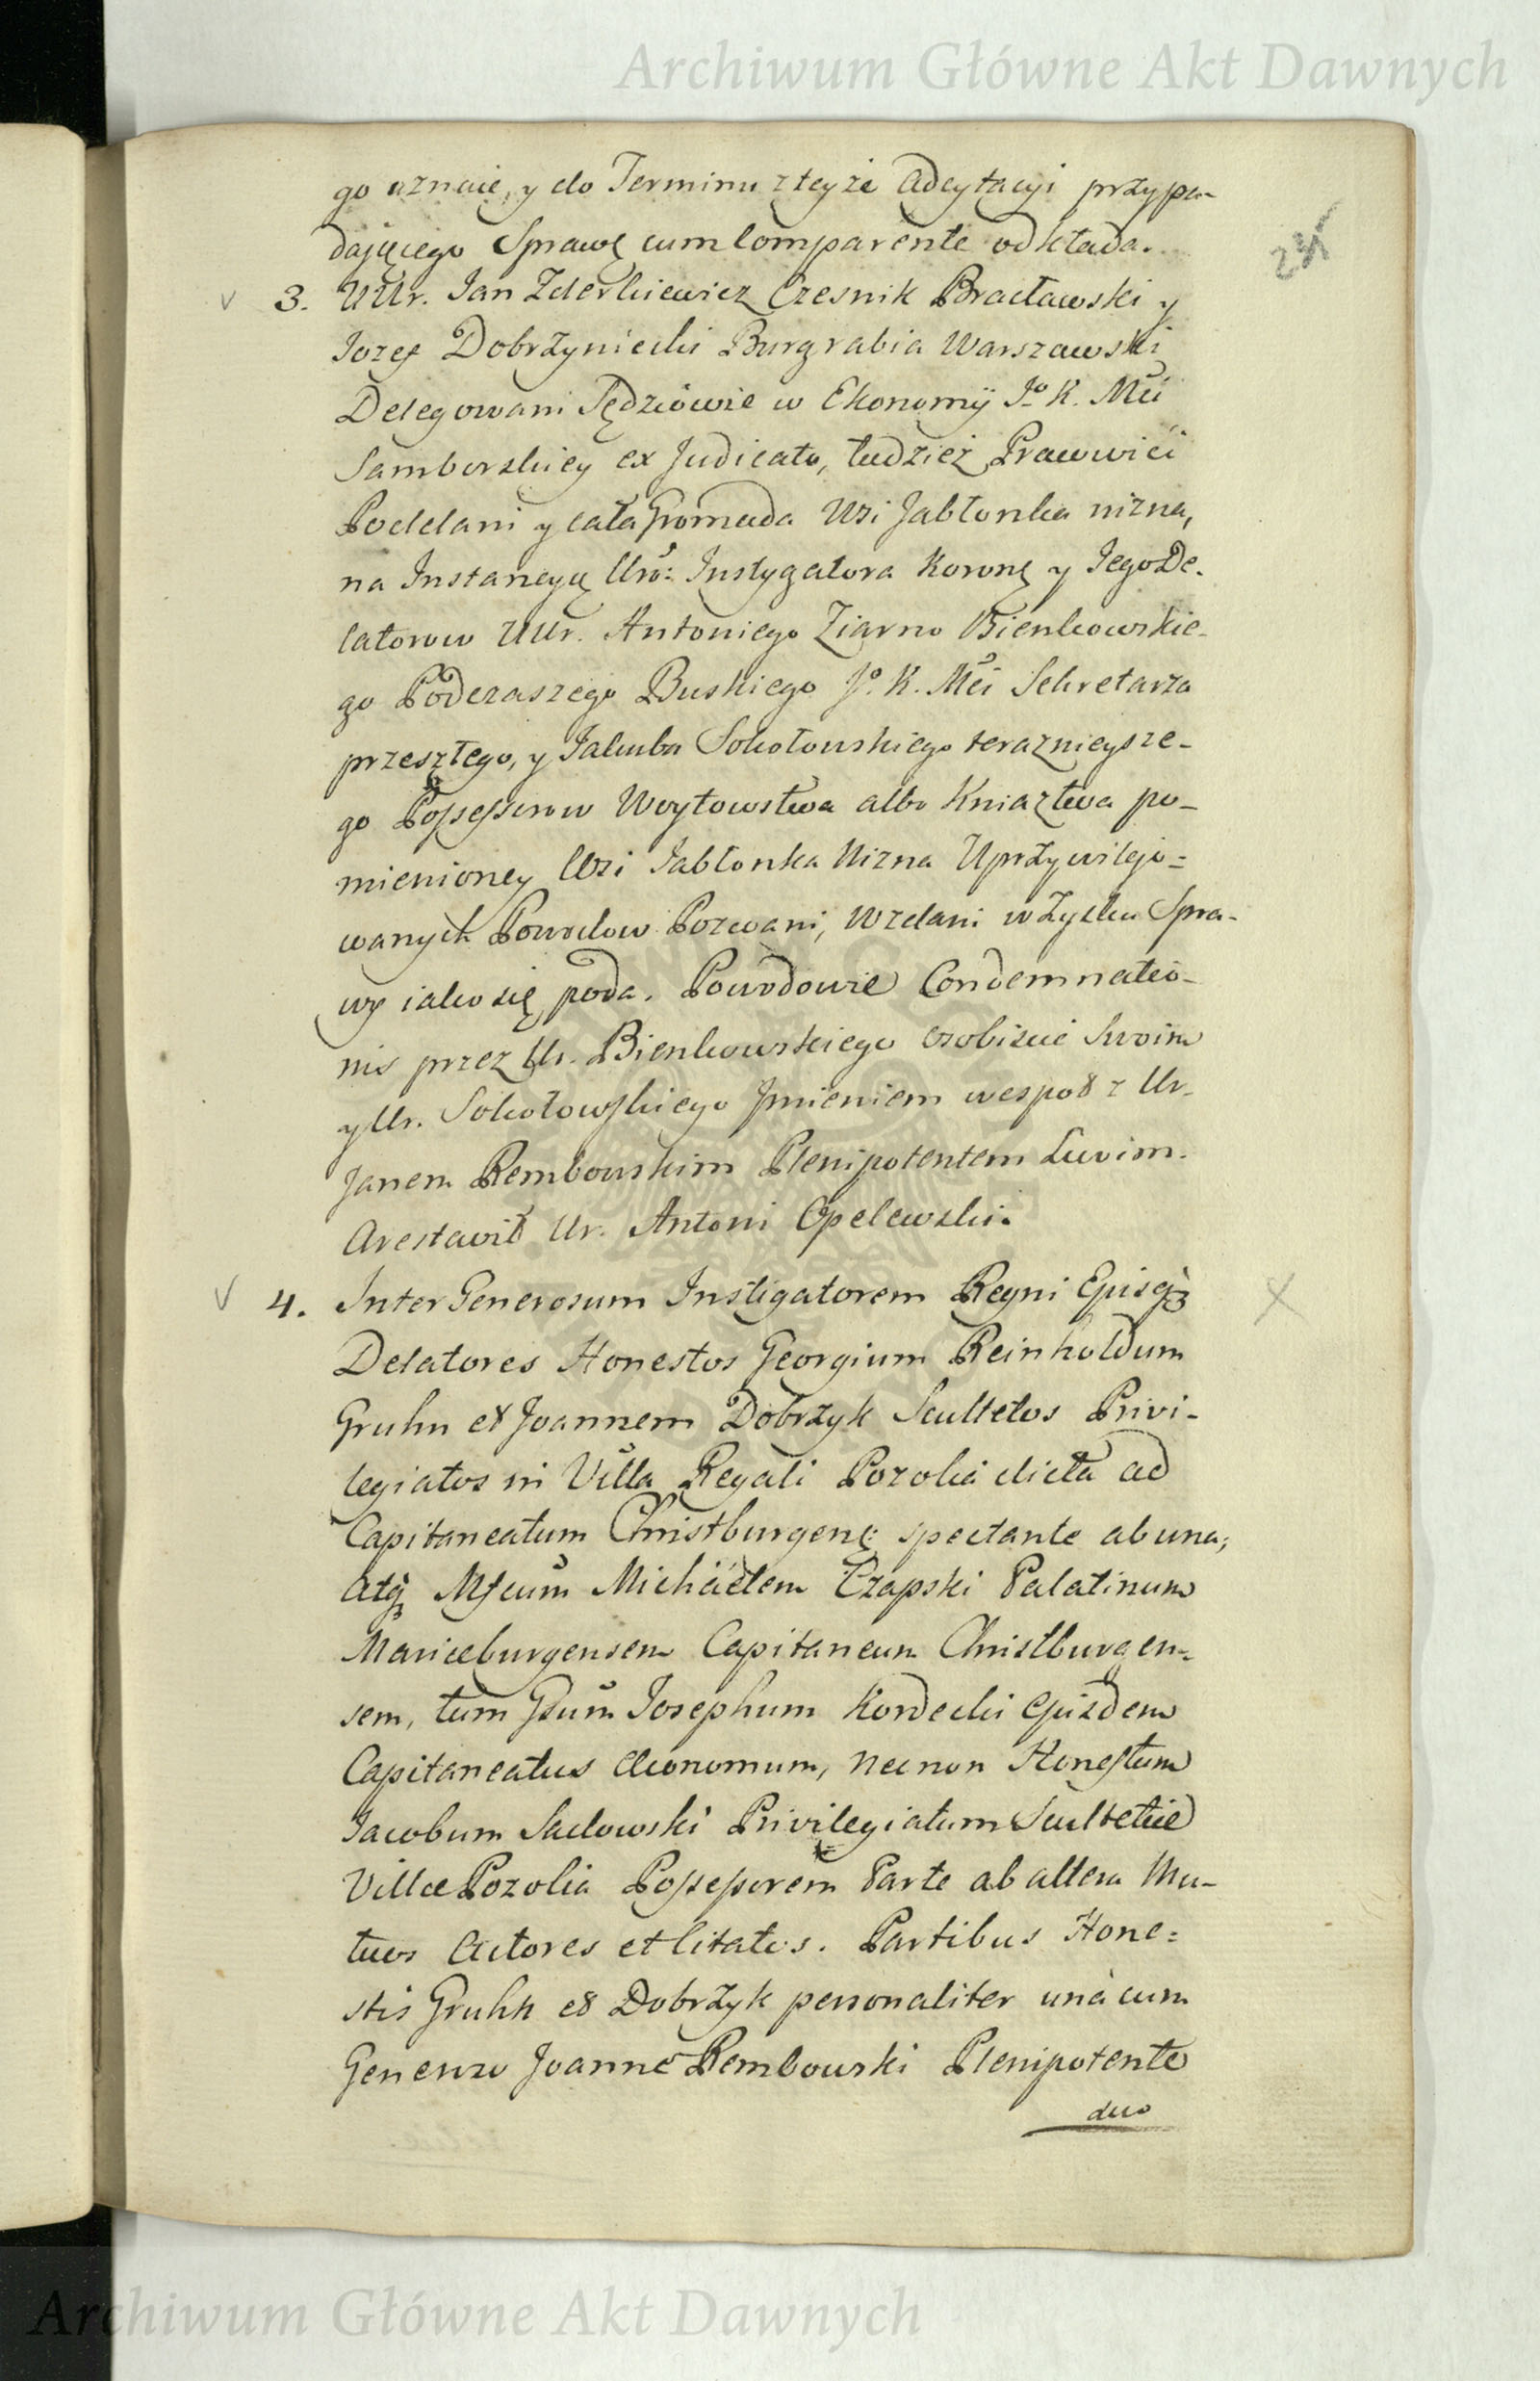 Archiwum Główne Akt Dawnych
go uznaie, y do Terminu zteyże Adcytacyi przypa-
daiącego Sprawę cum Comparente odkłada.
3. UUr. Jan Zderkiewicz Czesnik Bracławski y
Jozef Dobrzyniecki Burgrabia Warszawski
Delegowani Sędziowie w Ekonomÿi Jo K. Mci
Samborskiey ex Judicato, tudziez Prawowići
Poddani y cała Gromada Wsi Jabłonka nizna,
na Instancyą Uro: Instygatora Koronę y Jego De-
latorow UUr. Antoniego Ziarno Bienkowskie-
go Podczaszego Buskiego Jo. K. Mci Sekretarza
przeszłego, y Jakuba Sokołowskiego teraznieysze-
go Possessorow Woytowstwa albo Kniaztwa po-
mienioney Wsi Jabłonka Nizna Uprzywilejo=
wanych Powodow Pozwani, Wzdani w Zysku Spra-
wy iako się poda. Powodowie Condemnatio-
nis przez Ur. Bienkowskiego osobiscie Swoim
y Ur. Sokołowskiego Jmieniem wespoł z Ur.
Janem Rembowskim Plenipotentem Swoim.
Arestawił Ur. Antoni Opelewski.
4. Inter Generosum Instigatorem Regni Ejusq3
Delatores Honestos Georgium Reinholdum
Gruhn et Joannem Dobrzyk Scultetos Privi-
legiatos in Villa Regali Pozolia dicta ad
Capitaneatum Christburgenę: spectante ab una;
atq3 Mfcum Michäelem Czapski Palatinum
Mariæburgensem Capitaneum Christburgen=
sem, tum Gsum Josephum Kordecki Ejusdem
Capitaneatus Œconomum, necnon Honestum
Jacobum Sadowski Privilegiatum Scultetiæ
Villæ Pozolia Possessorem Parte ab altera Mu-
tuos Actores et Citatos. Partibus Hone=
stis Gruhn et Dobrzyk personaliter unà cum
Generoso Joanne Rembowski Plenipotente
duo
Archiwum Główne Akt Dawnych